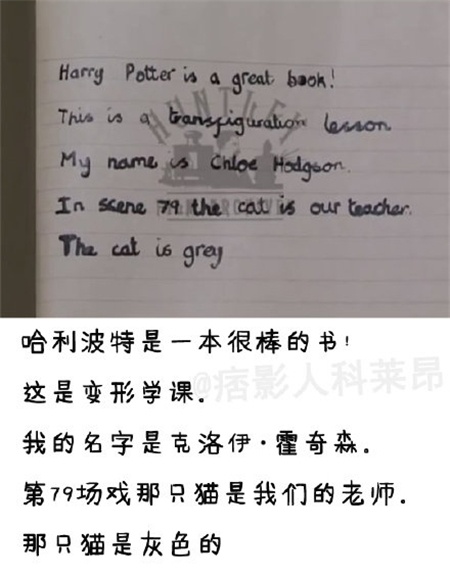 Harry Potter is a great book!
This is a transfiguration lesson
My name is Chloe Hodgson.
In scene 79 the cat is our teacher.
The cat is grey
哈利波特是一本很棒的书!
这是变形学课.
@痞影人科莱昂
我的名字是克洛伊·霍奇森.
第79场戏那只猫是我们的老师.
那只猫是灰色的